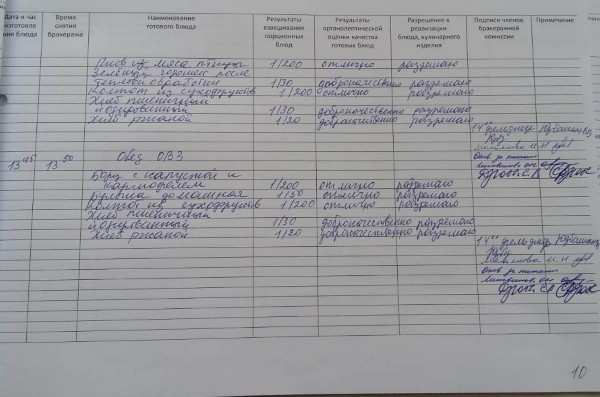 Дата и час изготовления блюда
Время снятия бракеража
Наименование готового блюда
Результаты взвешивания порционных блюд
Результаты органолептической оценки качества готовых блюд
Разрешение к реализации блюда, кулинарного изделия
Подписи членов бракеражной комиссии
Примечание
Плов из мяса птицы 1/200 отлично разрешаю
Зелёный горошек после
тепловой обработки 1/30 доброкачественно разрешаю
Компот из сухофруктов 1/200 отлично разрешаю
Хлеб пшеничный
йодированный 1/30 доброкачественно разрешаю
Хлеб ржаной 1/20 доброкачественно разрешаю
14 фельдшер
13 45 13 50 Обед ОВЗ
Борщ с капустой и
картофелем 1/200 отлично разрешаю
Булочка домашняя 1/50 отлично разрешаю
Компот из сухофруктов 1/200 отлично разрешаю
Хлеб пшеничный
йодированный 1/30 доброкачественно разрешаю
Хлеб ржаной 1/20 доброкачественно разрешаю
14 фельдшер
10